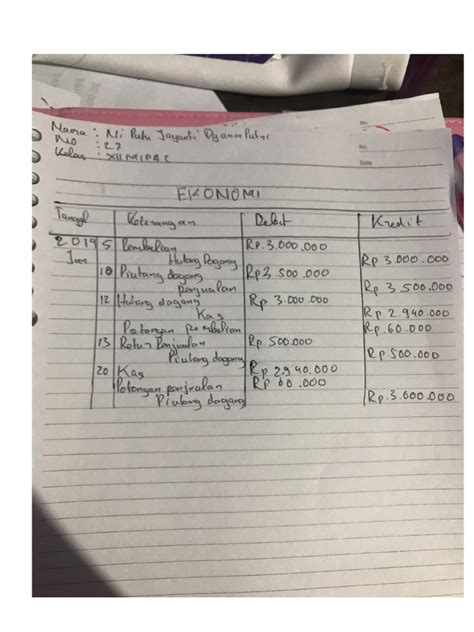 No.
Nama : Ni Putu Jayanti
No : 27
No.
Kelas : XII MIPA 2
Date
EKONOMI
Tanggal Keterangan Debit Kredit
2019 5 Pembelian Rp.3.000.000
Jan Hutang Dagang Rp 3.000.000
10 Piutang dagang Rp3.500.000
penjualan Rp 3.500.000
12 Hutang dagang Rp 3.000.000
Kas Rp. 2.940.000
Potongan pembelian Rp.60.000
13 Retur Penjualan Rp 500.000
Piutang dagang Rp.500.000
20 Kas Rp 2.940.000
Potongan penjualan Rp 60.000
Piutang dagang Rp.3.000.000